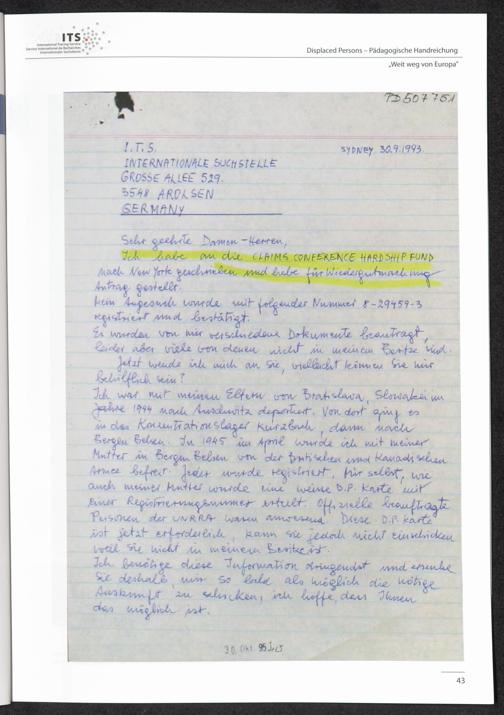 ITS
International Tracing Service
Service International de Recherches
Internationaler Suchdienst
Displaced Persons – Pädagogische Handreichung
„Weit weg von Europa“
TD 507751
I.T.S.
SYDNEY 30.9.1993.
INTERNATIONALE SUCHSTELLE
GROSSE ALLEE 529.
3548 AROLSEN
GERMANY
Sehr geehrte Damen-Herren,
Ich habe an die CLAIMS CONFERENCE HARDSHIP FUND
nach New York geschrieben und habe für Wiedergutmachung
Antrag gestellt.
Mein Angesuch wurde mit folgender Nummer 8-29459-3
registriert und bestätigt.
Es wurden von mir verschiedene Dokumente beantragt,
leider aber viele von denen nicht in meinem Besitze sind.
Jetzt wende ich mich an Sie, vielleicht können Sie mir
behilflich sein?
Ich war mit meinen Eltern von Bratislava, Slowakei im
Jahre 1944 nach Auschwitz deportiert. Von dort ging es
in das Konzentrationslager Kurzbach, dann nach
Bergen Belsen. In 1945 im April wurde ich mit meiner
Mutter in Bergen Belsen von der Britischen und Kanadischen
Armee befreit. Jeder wurde registriert, für selbst, wie
auch meiner Mutter wurde eine weisse D.P. Karte mit
einer Registrierungsnummer erteilt. Offizielle beauftragte
Personen der UNRRA waren anwesend. Diese D.P. Karte
ist jetzt erforderlich, kann sie jedoch nicht einschicken
weil sie nicht in meinem Besitze ist.
Ich benötige diese Information dringendst und ersuche
Sie deshalb, mir so bald als möglich die nötige
Auskunft zu schicken, ich hoffe, dass Ihnen
das möglich ist.
30. Okt. 95
43